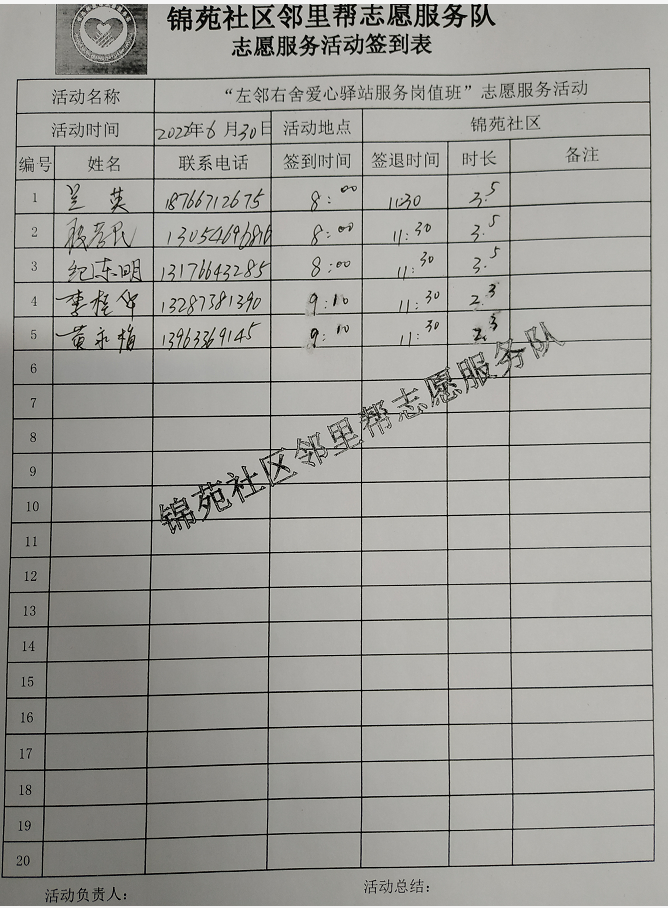 锦苑社区邻里帮志愿服务队
志愿服务活动签到表
活动名称 “左邻右舍爱心驿站服务岗值班”志愿服务活动
活动时间 2022年6月30日 活动地点 锦苑社区
编号 姓名 联系电话 签到时间 签退时间 时长 备注
1 兰英 18766712675 8:00 11:30 3.5
2 13054696816 8:00 11:30 3.5
3 纪东明 13176643285 8:00 11:30 3.5
4 李桂华 13287381390 9:10 11:30 2.3
5 黄永梅 13963369145 9:10 11:30 2.3
6
7
8
9
10
11
12
13
14
15
16
17
18
19
20
锦苑社区邻里帮志愿服务队
活动负责人: 活动总结: